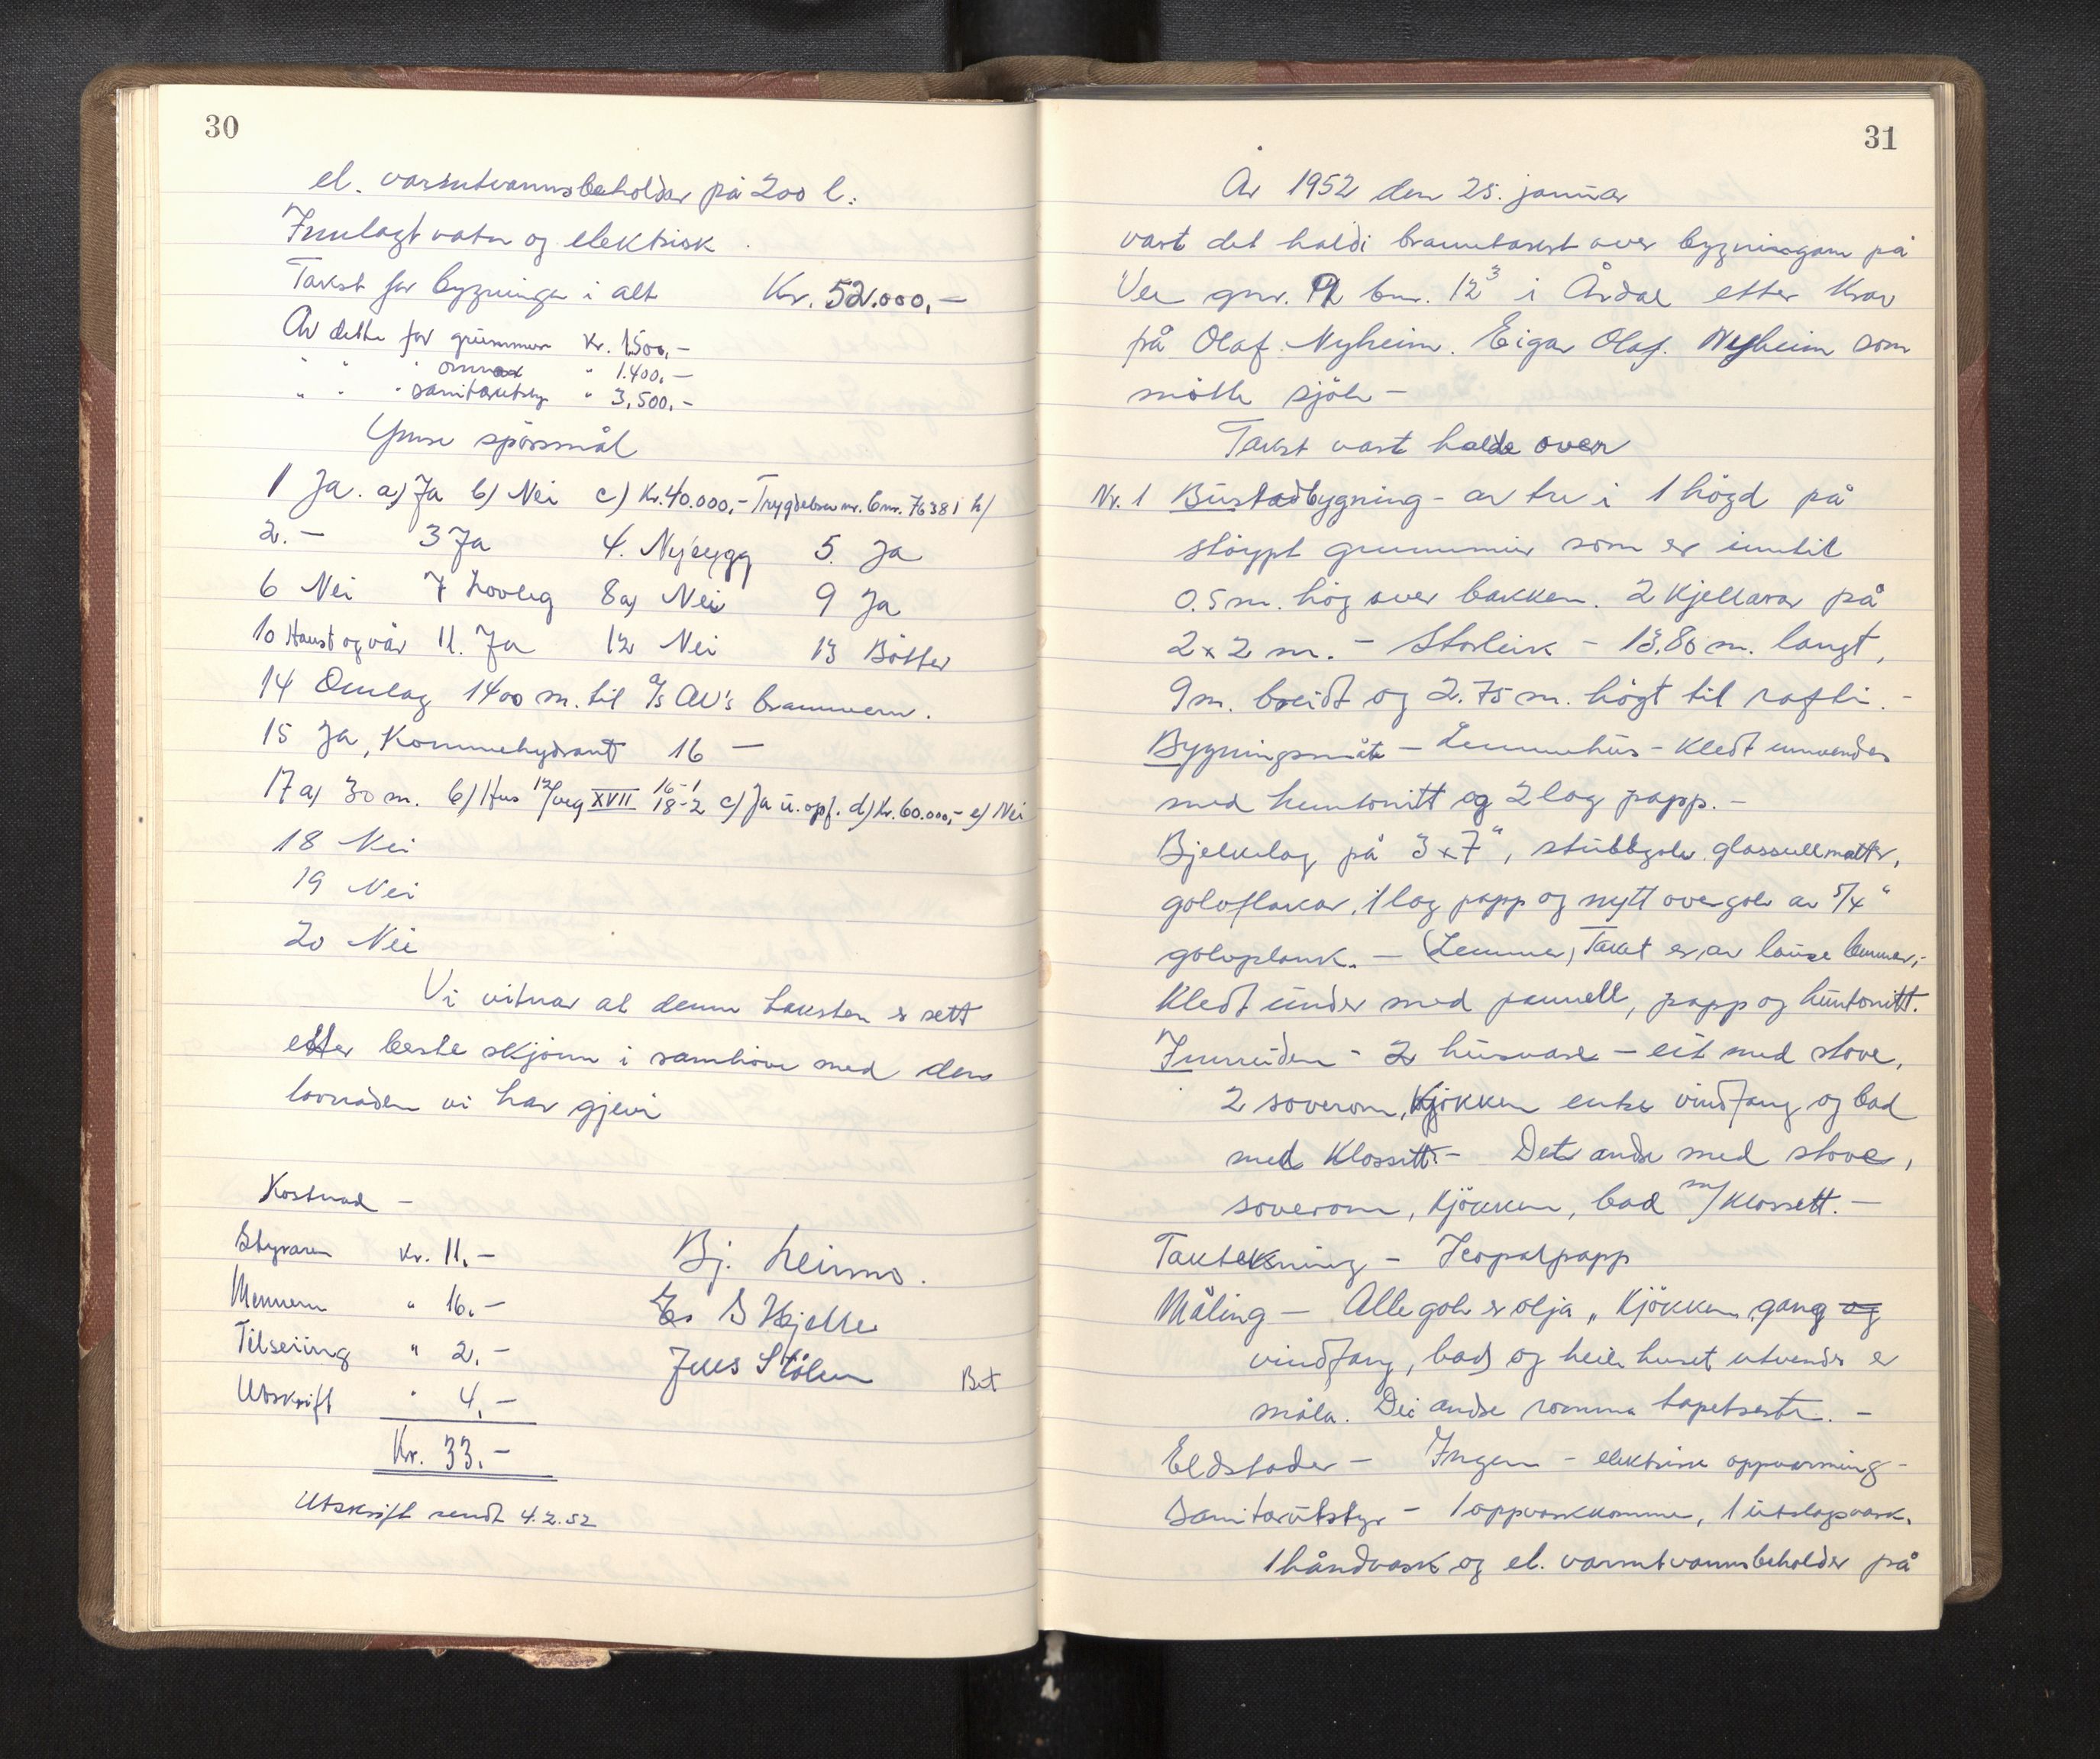 30
el. varmtvannsbeholder på 200 l.
Innlagt vatn og elektrisk.
Takst for bygninga i alt Kr. 52.000,-
Av dette for grunnmur Kr. 1.500,-
" " " omnar " 1.400,-
" " " sanitærutstyr " 3,500,-
Ymse spörsmål
1 Ja. a) Ja b) Nei c) Kr. 40.000,- Trygdebrev nr. bnr. 76381 h/
2. – 3 Ja 4. Nybygg 5. Ja
6 Nei 7 Lovleg 8a) Nei 9 Ja
10 Haust og vår 11. Ja 12 Nei 13 Bötter
14 Omlag 1400 m. til A/S ÅV's brannvern.
15 Ja, Kommehydrant 16 –
17 a) 30 m. b) Hus 12/veg XVII 16-1 18-2 c) Ja u. opf. d) Kr. 60.000,- e) Nei
18 Nei
19 Nei
20 Nei
Vi vitnar at denne taksten er sett
etter beste skjönn i samhöve med den
lovnaden vi har gjevi
Kostnad –
Styraren Kr. 11.-
Mennene " 16.-
Tilseiing " 2.-
Utskrift " 4.-
Kr. 33.-
Bj. Leirmo.
S Hjelle
Jens Stölen
Bet
Utskrift sendt 4.2.52
31
År 1952 den 25. januar
vart det haldi branntakst over bygningane på
Vee gnr. 12 bnr. 12³ i Årdal etter krav
på Olaf. Nyheim. Eigar Olaf. Nyheim som
mötte sjölv –
Takst vart halde over
Nr. 1 Bustadbygning – av tre i 1 högd på
stöypt grunnmur som er inntil
0.5 m. hög over bakken. 2 kjellarar på
2 x 2 m. – Storleik – 13,80 m. langt,
9 m. breidt og 2.75 m. högt til rafti. –
Bygningsmåte – Lemmehus – Kledt innvendes
med huntonitt og 2 lag papp. –
Bjelkelag på 3 x 7", stubbgolv. glassullmatter,
golvflakar, 1 lag papp og nytt overgolv av 5/4"
golvplank. – (Lemmer) Taket er av lause lemmer,-
Kledt under med pannell, papp og huntonitt.
Innreiden – 2 husvære – eit med stove,
2 soverom, Kjökken entre vindfang og bad
med Klossett. – Det andre med stove,
soverom, Kjökken, bad m/Klossett. –
Taktekning – Icopalpapp
Måling – Alle golv er olja, Kjökken, gang og
vindfang, bad og heile huset utvendes er
måla. Dei andre romma tapetserte. –
Eldstader – Ingen – elektrisk oppvarming –
Sanitærutstyr – 1 oppvaskkumme, 1 utslagsvask,
1 håndvask og el. varmtvannsbeholder på